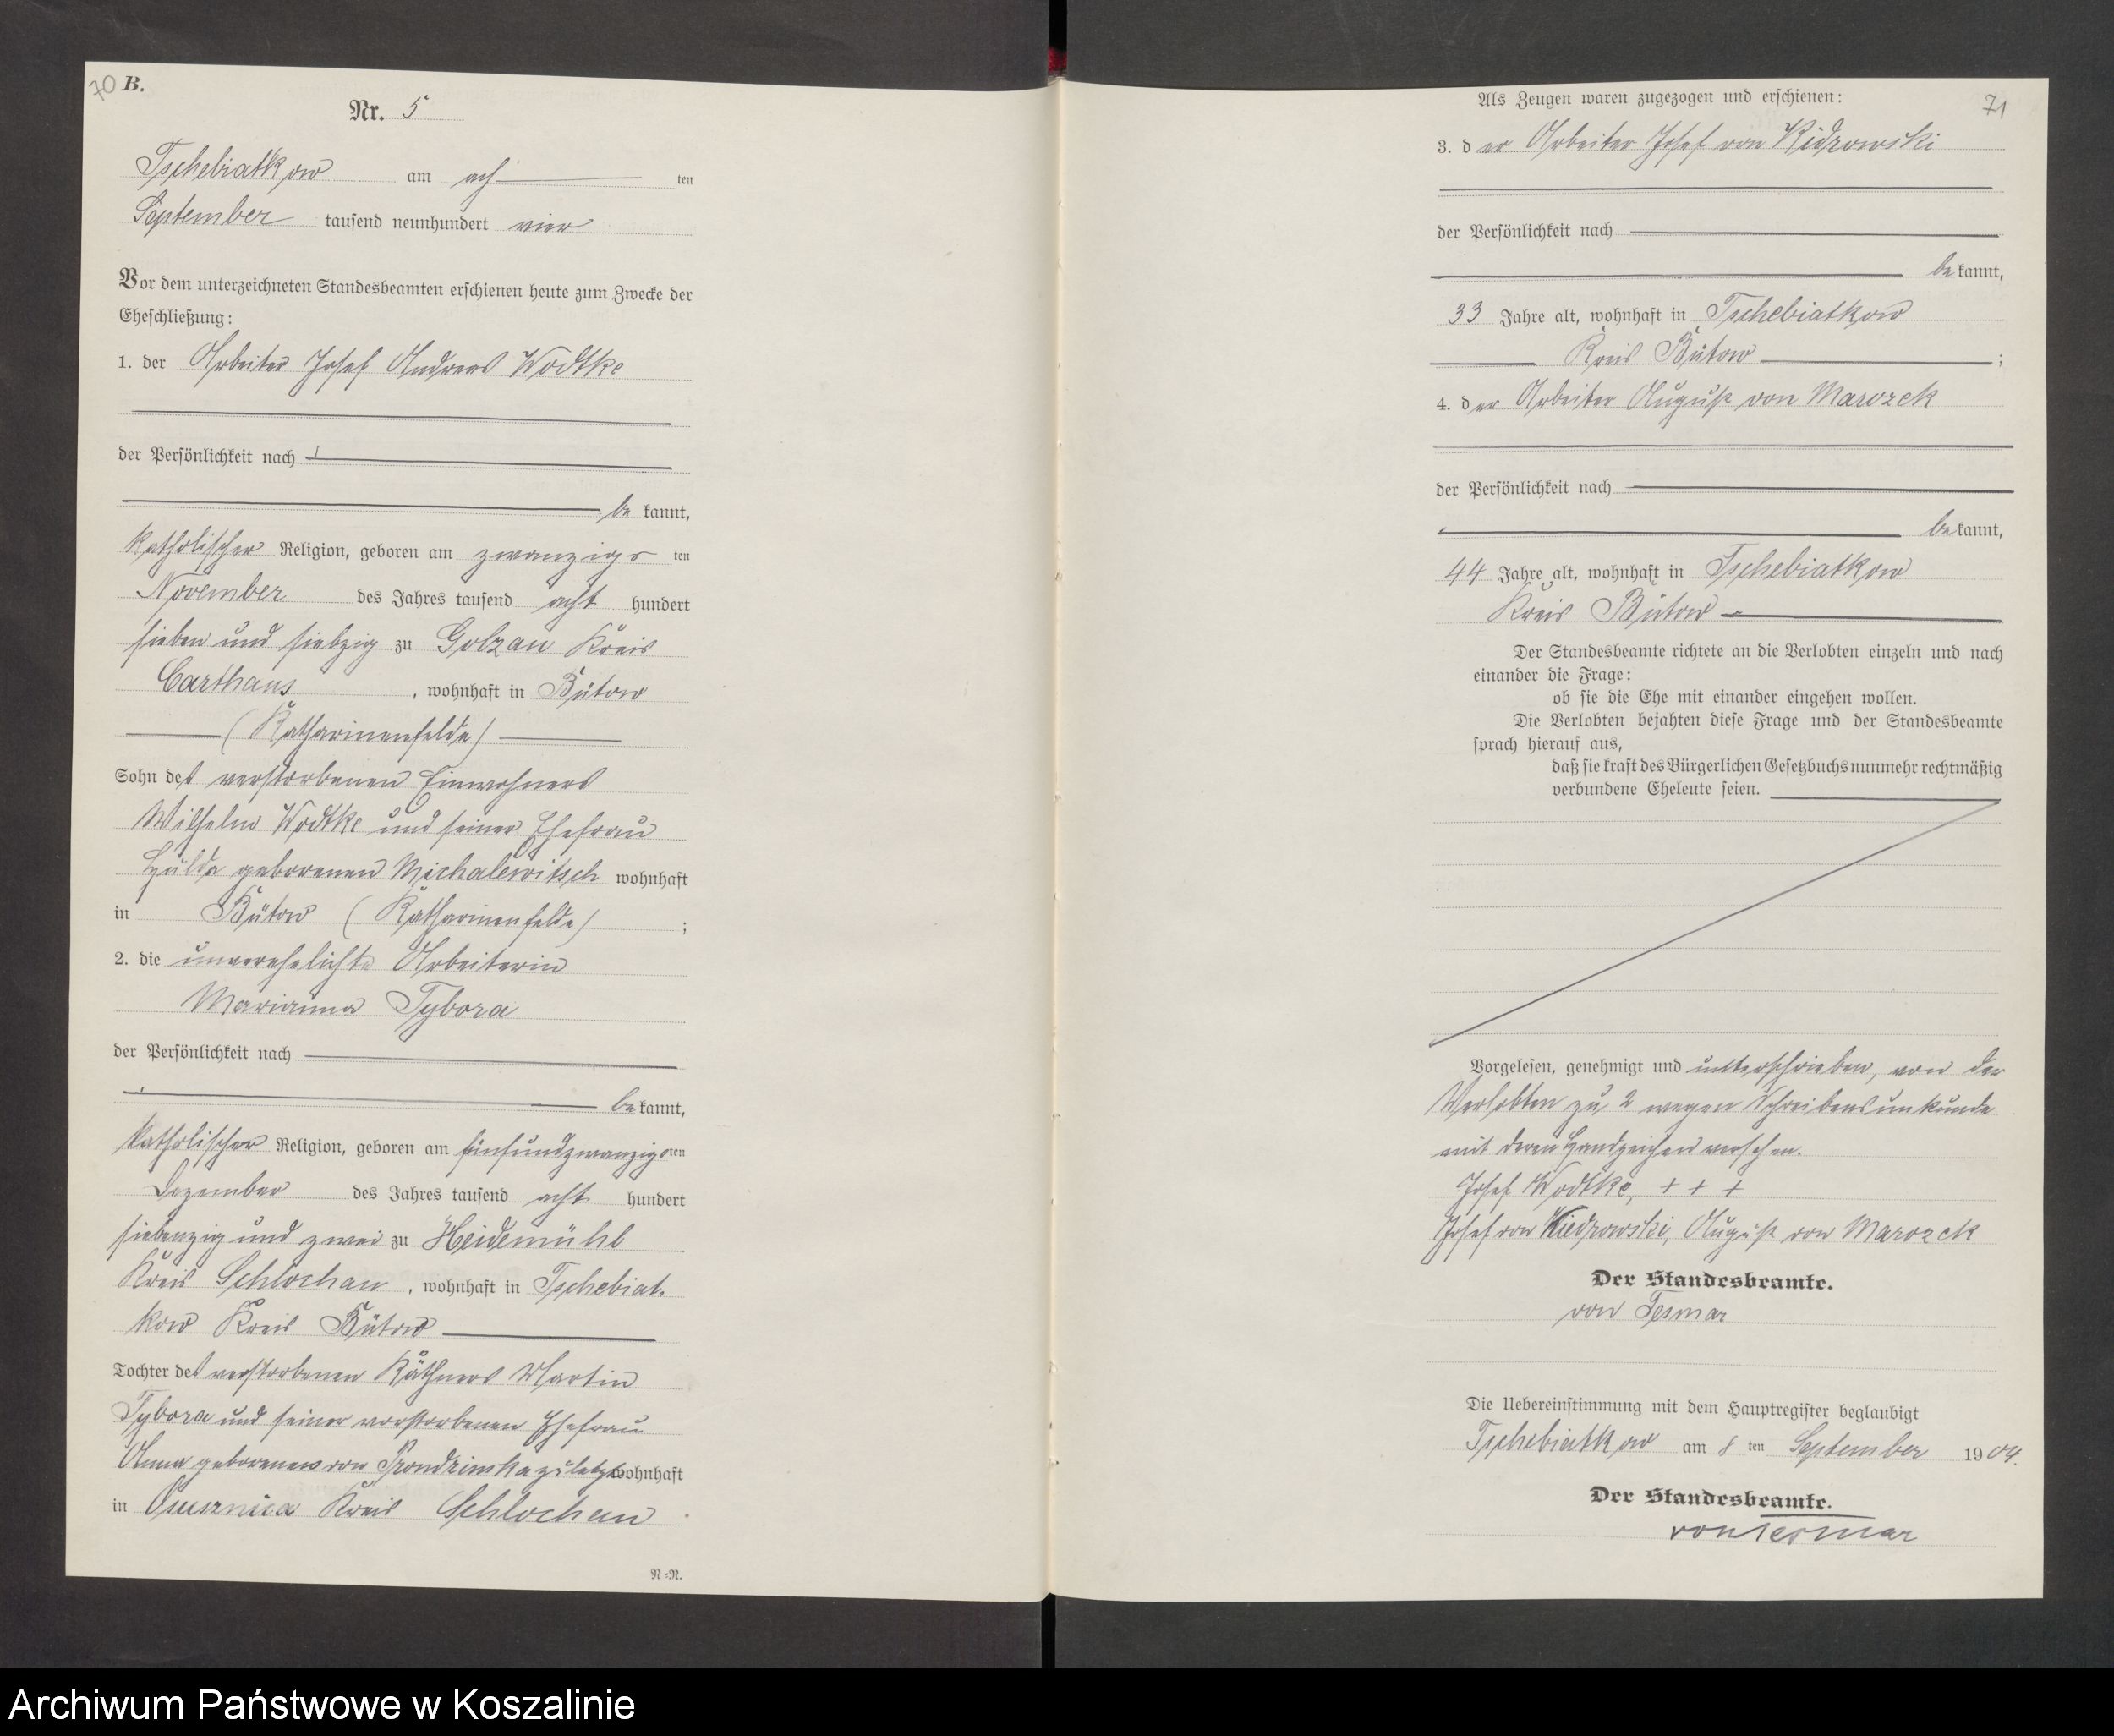 70 B.
Nr. 5
Tschebiatkow am ach ten
September tausend neunhundert vier
Vor dem unterzeichneten Standesbeamten erschienen heute zum Zwecke der
Eheschließung:
1. der Arbeiter Josef Andreas Wodtke
der Persönlichkeit nach
be kannt,
katholischer Religion, geboren am zwanzigs ten
November des Jahres tausend acht hundert
sieben und siebzig zu Golzau Kreis
Carthaus, wohnhaft in Bütow
(Katharinenfelde)
Sohn des verstorbenen Einwohners
Wilhelm Wodtke und seiner Ehefrau
Hulda geborenen Michalewitsch wohnhaft
in Bütow (Katharinenfelde) ;
2. die unverehelichte Arbeiterin
Marianna Tybora
der Persönlichkeit nach
be kannt,
katholischer Religion, geboren am fünfundzwanzigsten
Dezember des Jahres tausend acht hundert
siebenzig und zwei zu Heidemühl
Kreis Schlochau, wohnhaft in Tschebiat-
kow Kreis Bütow
Tochter des verstorbenen Käthners Martin
Tybora und seiner verstorbenen Ehefrau
Anna geborenen von zuletzt wohnhaft
in Ossusznica Kreis Schlochau.
N.-R.
71
Als Zeugen waren zugezogen und erschienen:
3. der Arbeiter Josef von Kidrowski
der Persönlichkeit nach
be kannt,
33 Jahre alt, wohnhaft in Tschebiatkow
Kreis Bütow ;
4. der Arbeiter August von Marozek
der Persönlichkeit nach
be kannt,
44 Jahre alt, wohnhaft in Tschebiatkow
Kreis Bütow
Der Standesbeamte richtete an die Verlobten einzeln und nach
einander die Frage:
ob sie die Ehe mit einander eingehen wollen.
Die Verlobten bejahten diese Frage und der Standesbeamte
sprach hierauf aus,
daß sie kraft des Bürgerlichen Gesetzbuchs nunmehr rechtmäßig
verbundene Eheleute seien.
Vorgelesen, genehmigt und unterschrieben, von der
Verlobten zu 2 wegen Schreibensunkunde
mit deren Handzeichen versehen.
Josef Wodtke, + + +
Josef von Kiedrowski, August von Marozek
Der Standesbeamte.
von Tesmar
Die Uebereinstimmung mit dem Hauptregister beglaubigt
Tschebiatkow am 8 ten September 1904.
Der Standesbeamte.
von Tesmar
Archiwum Państwowe w Koszalinie